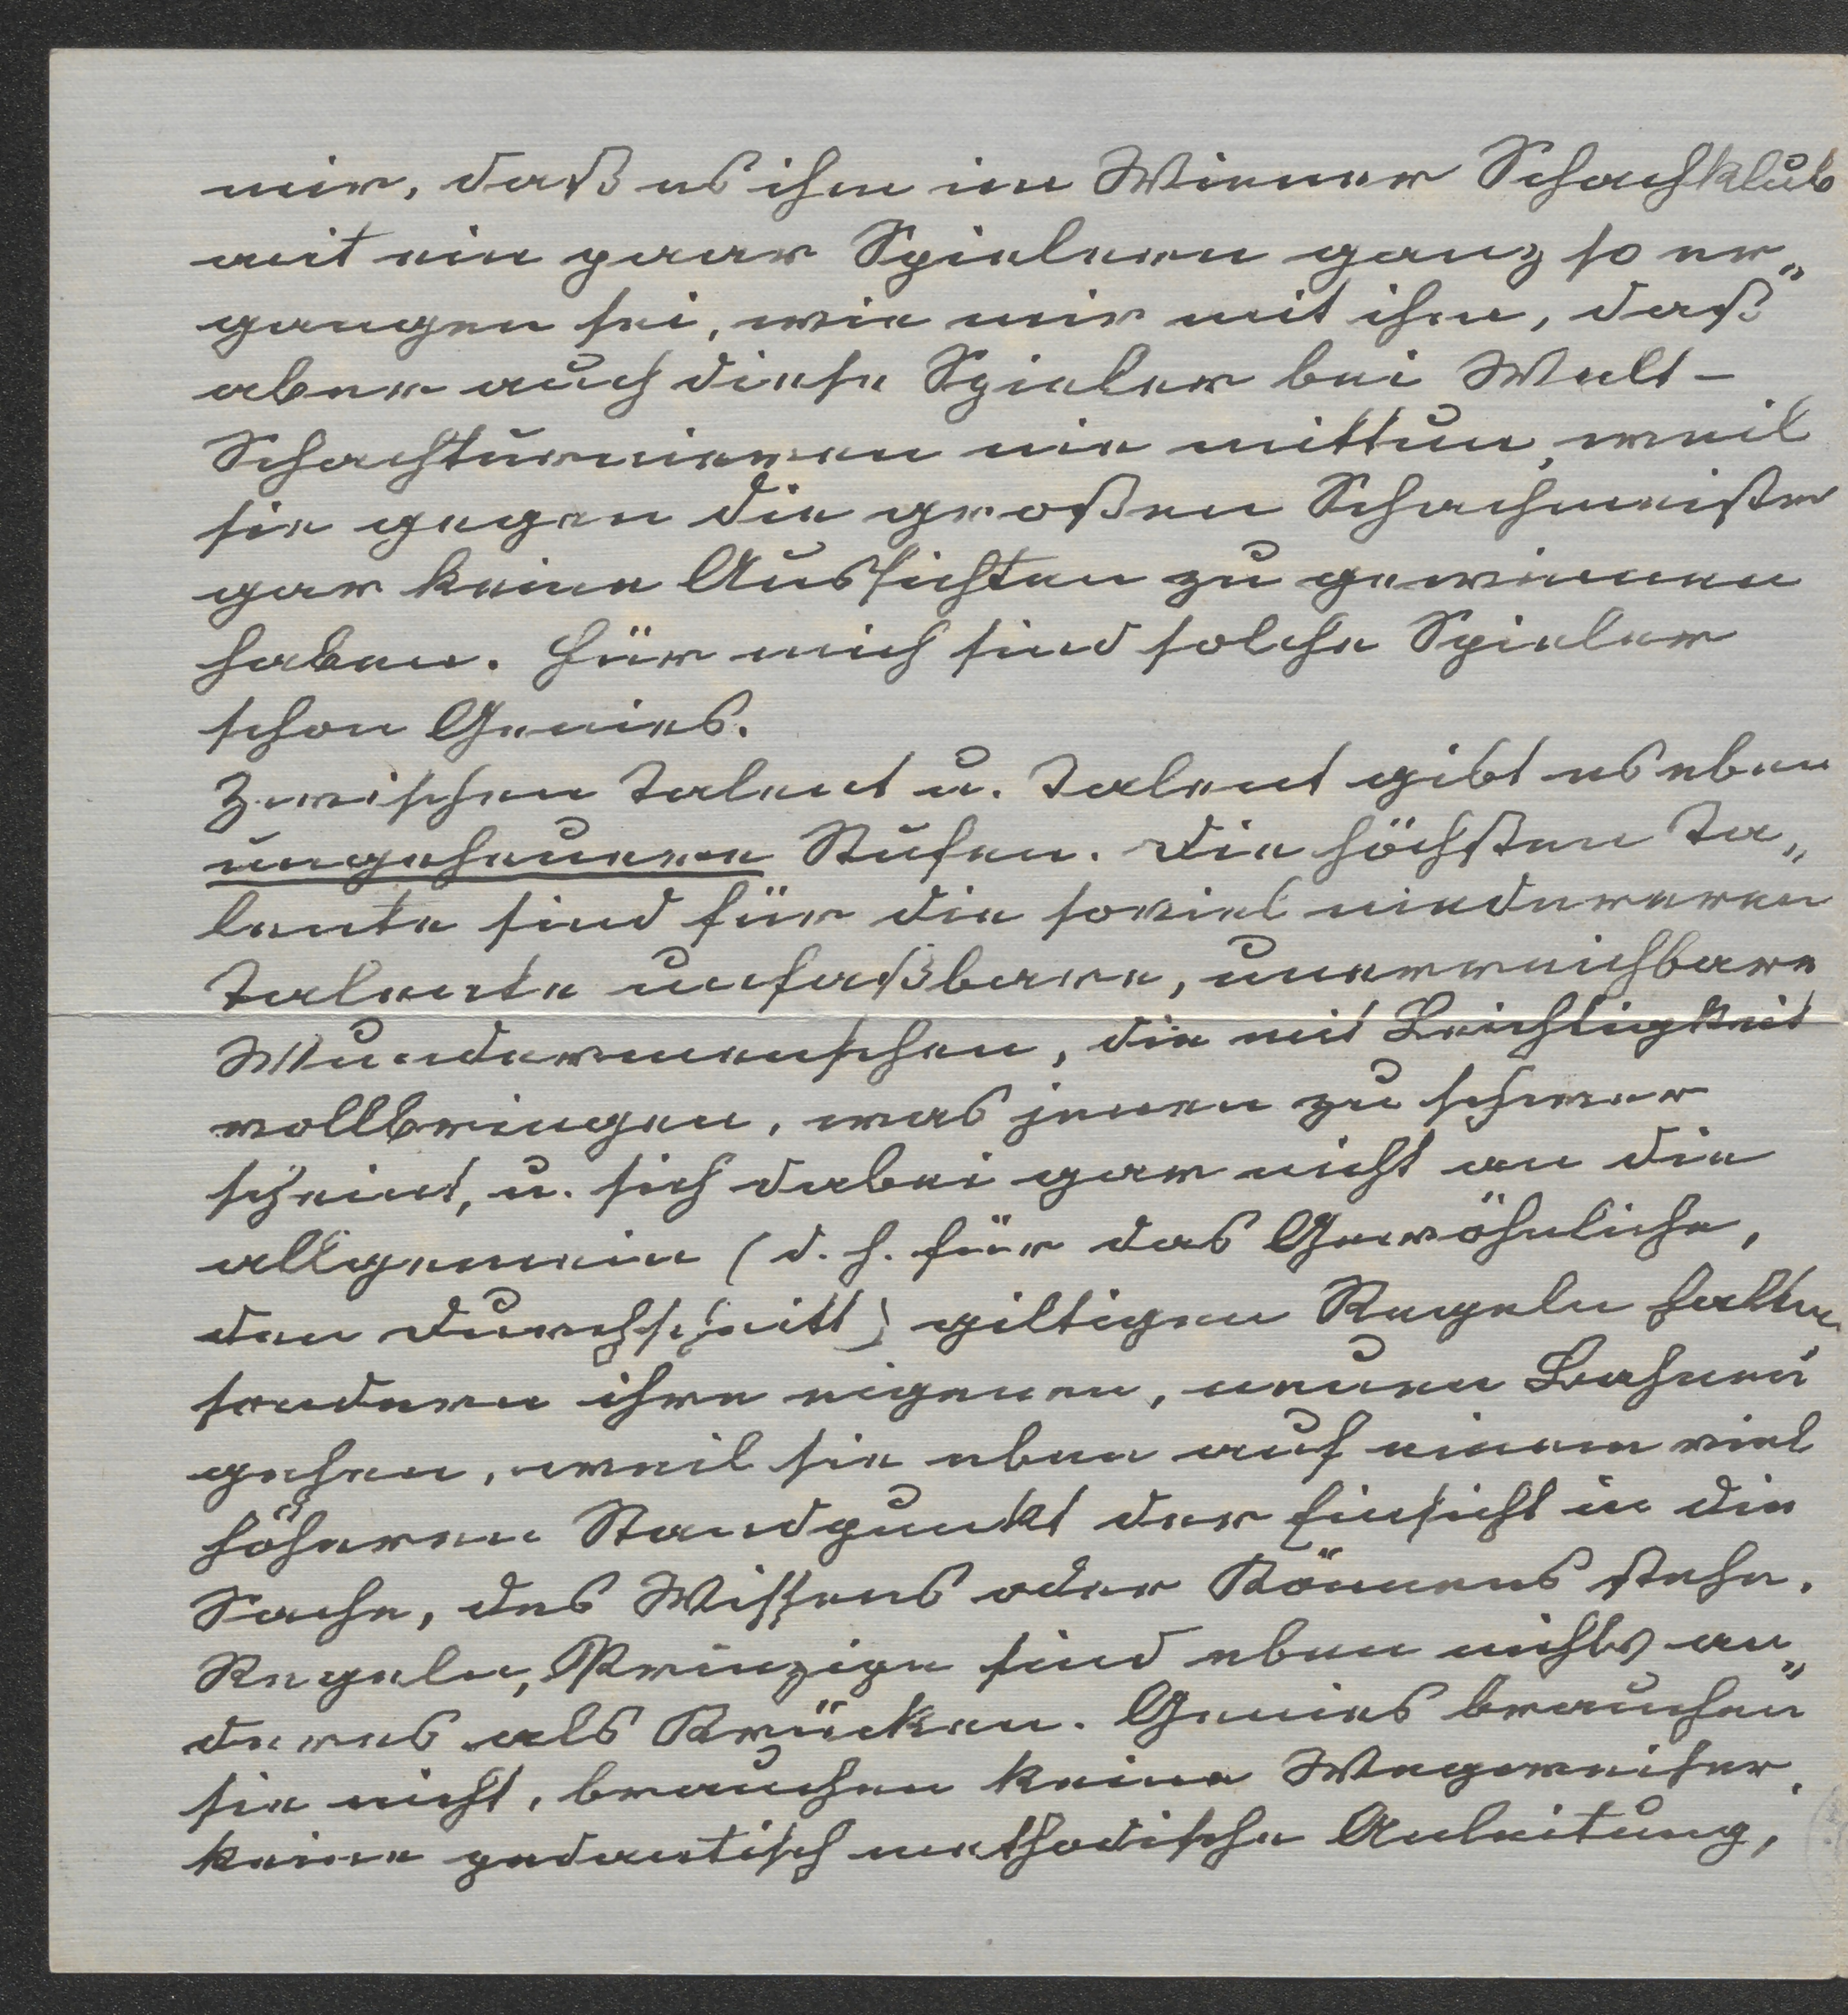 mir, daß es ihm im Wiener Schachklub
mit ein paar Spielern ganz so er„
gangen sei, wie mir mit ihm, daß
aber auch diese Spieler bei Welt-
Schachturnieren nie mittun, weil
sie gegen die großen Schachmeister
gar keine Aussichten zu gewinnen
haben. Für mich sind solche Spieler
schon Genies.
Zwischen Talent u. Talent gibt es eben
ungeheuere Stufen. Die höchsten Ta„
lente sind für die soviel niedereren
Talente unfaßbare, unerreichbare
Wundermenschen, die mit Leichtigkeit
vollbringen, was jenen zu schwer
scheint, u. sich dabei gar nicht an die
allgemein (d. h. für das Gewöhnliche,
den Durchschnitt) giltigen Regeln halten
sondern ihre eigenen, neuen Bahnen
gehen, weil sie eben auf einem viel
höheren Standpunkt der Einsicht in die
Sache, des Wissens oder Könnens stehn.
Regeln, Prinzipe sind eben nichts an„
deres als Krücken. Genies brauchen
sie nicht, brauchen keine Wegweiser,
keine pedantisch methodische Anleitung,